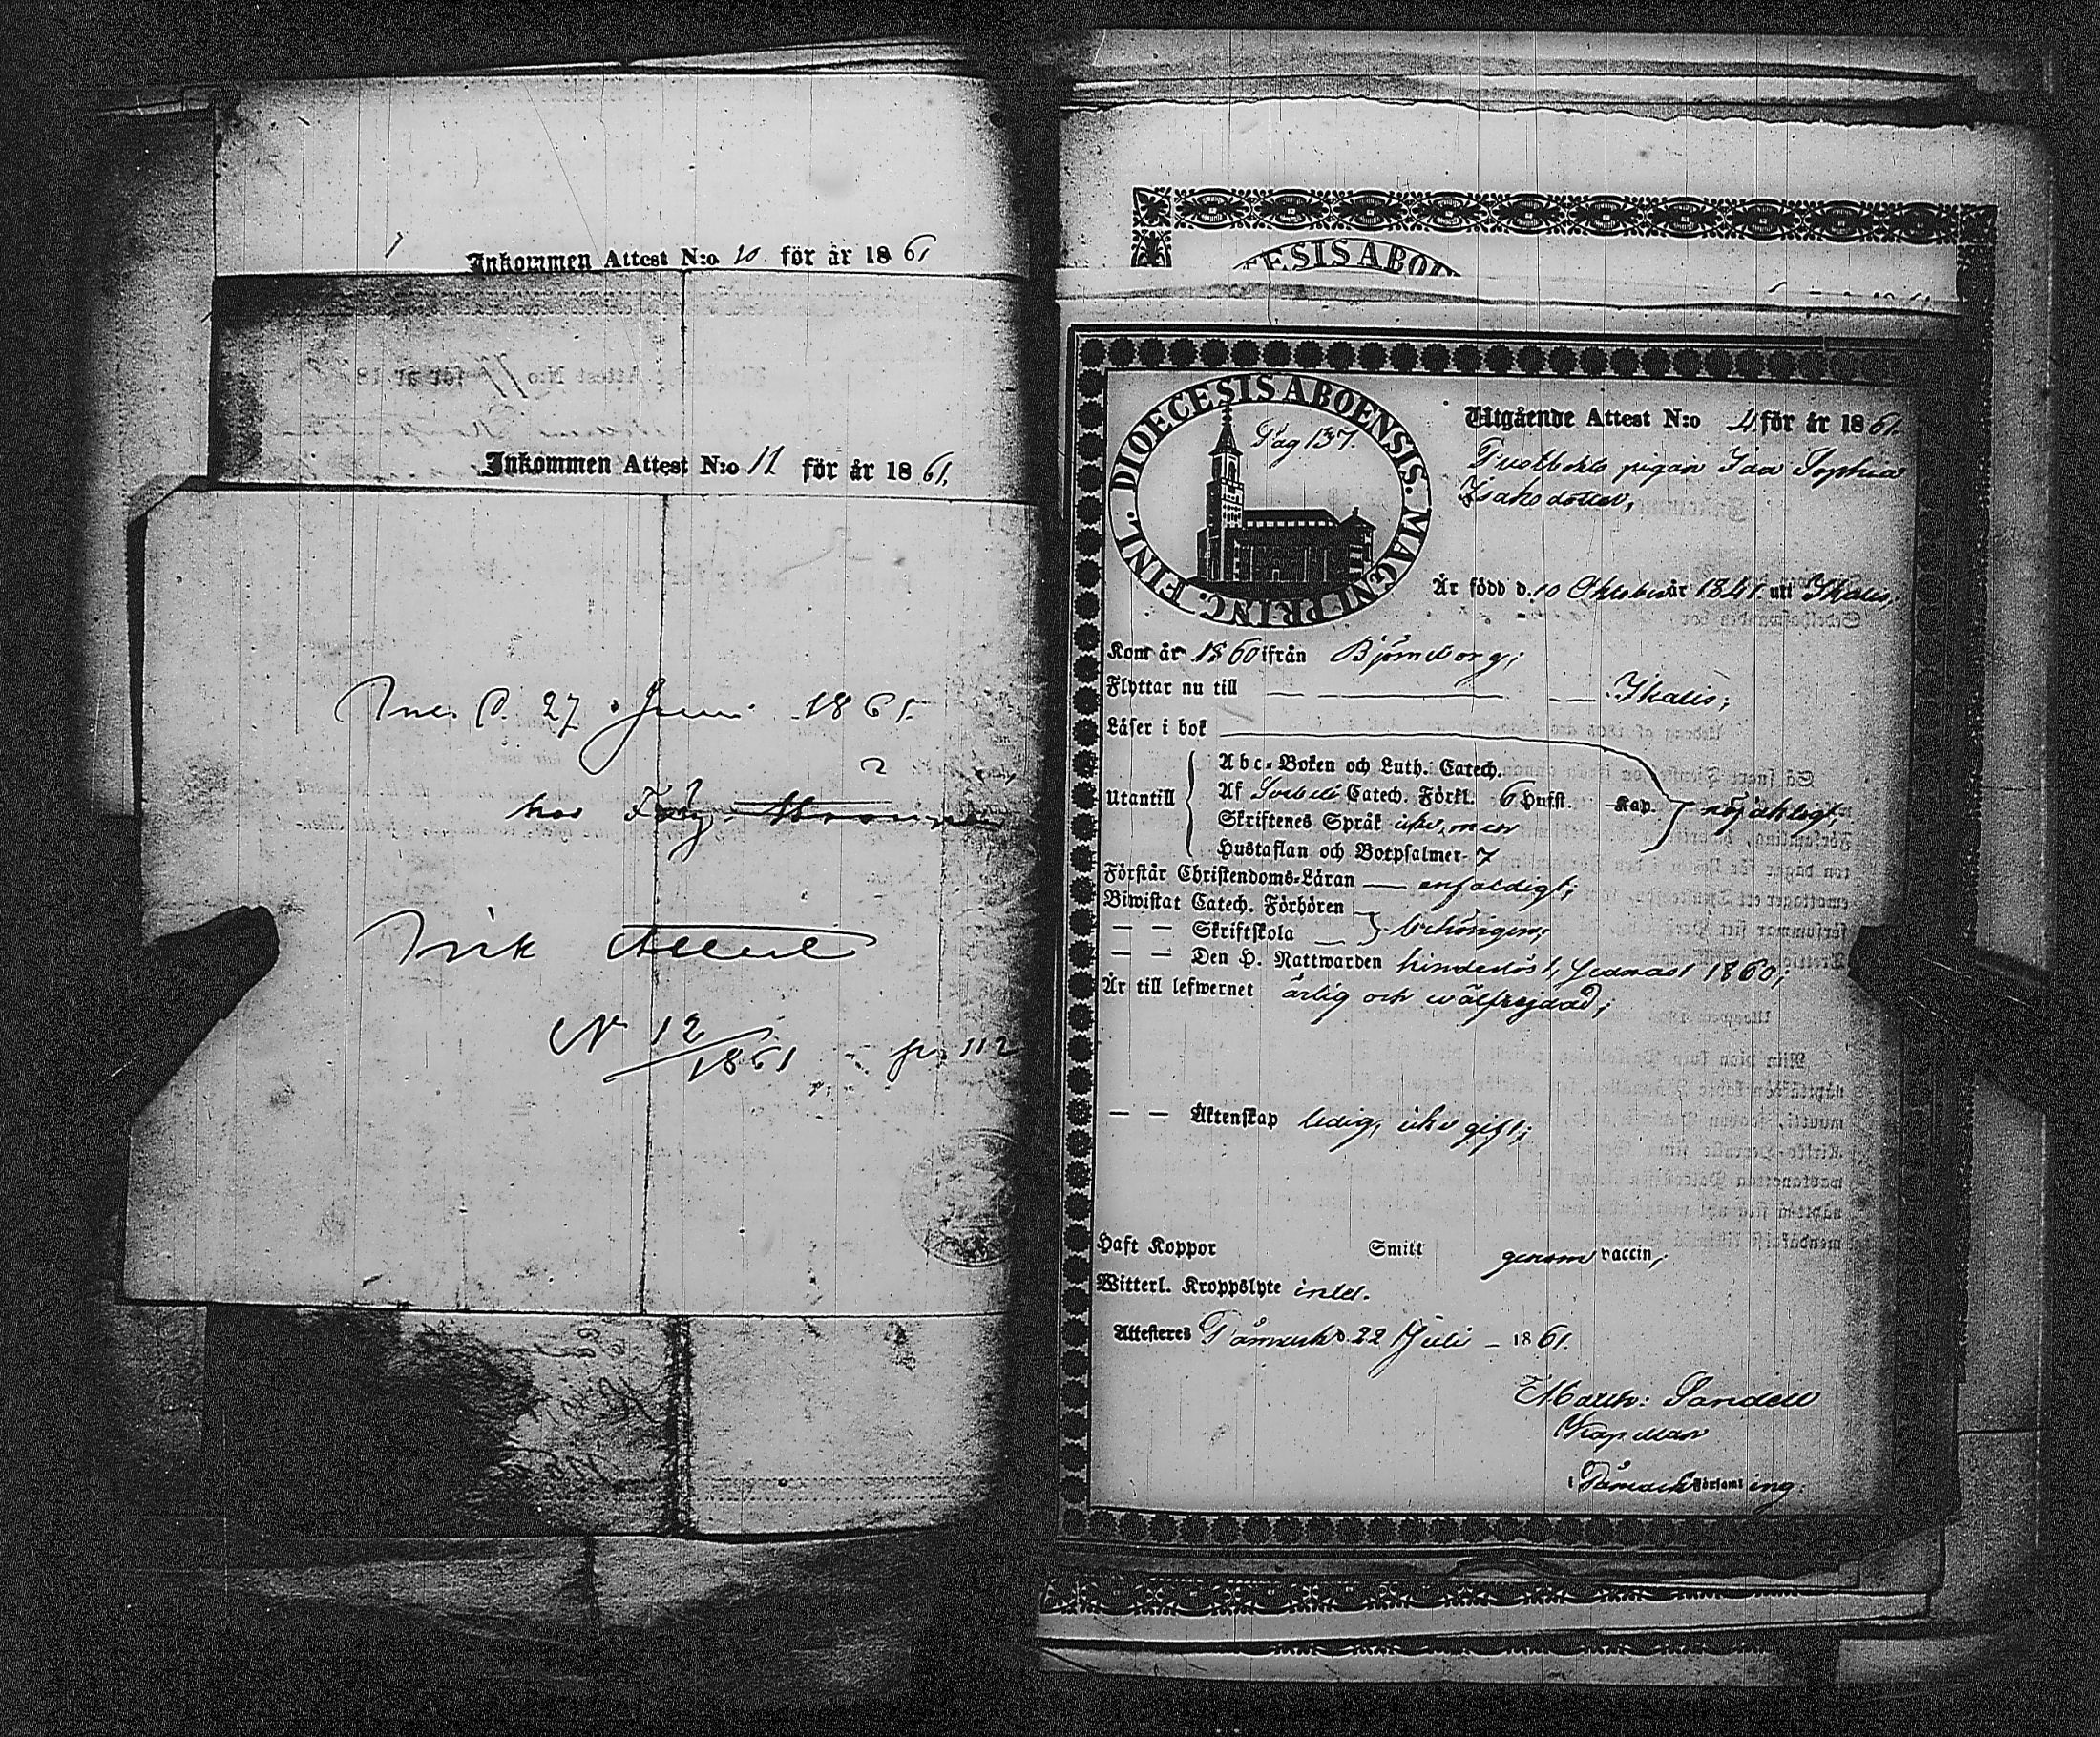 Inkommen Attest N:o 10 för år 1861
Inkommen Attest N:o 11 för år 1861.
d. 27 Juni 1861.
hos
Attest
N 12
1861
112
DIOECESIS ABOENSIS. MAGNI PRINC. FINL.
Pag 137.
Utgående Attest N:o 4 för år 1861.
pigan Isa Sophia
Isaksdotter,
Är född d. 10 Oktober år 1841 uti Ikalis,
Kom år 1860 ifrån Björneborg;
Flyttar nu till — — — Ikalis;
Läser i bok
Utantill
Abc-Boken och Luth. Catech.
Af Svebelii Catech. Förkl. 6 Hufst. Kap. nöjaktigt,
Skriftenes Språk icke, men
Hustaflan och Botpsalmer 7
Förstår Christendoms-Läran — enfaldigt;
Biwistat Catech. Förhören
— — Skriftskola — behörigen;
— — Den H. Nattwarden hinderlöst, sednast 1860;
Är till lefwernet ärlig och wälfrejdad;
— — Äktenskap ledig, icke gift;
Haft Koppor Smitt genom vaccin,
Witterl. Kroppslyte intet.
Attesteres Påmark d. 22 Juli — 1861.
Matth: Sandell
Kapellan
i Påmark Församling.